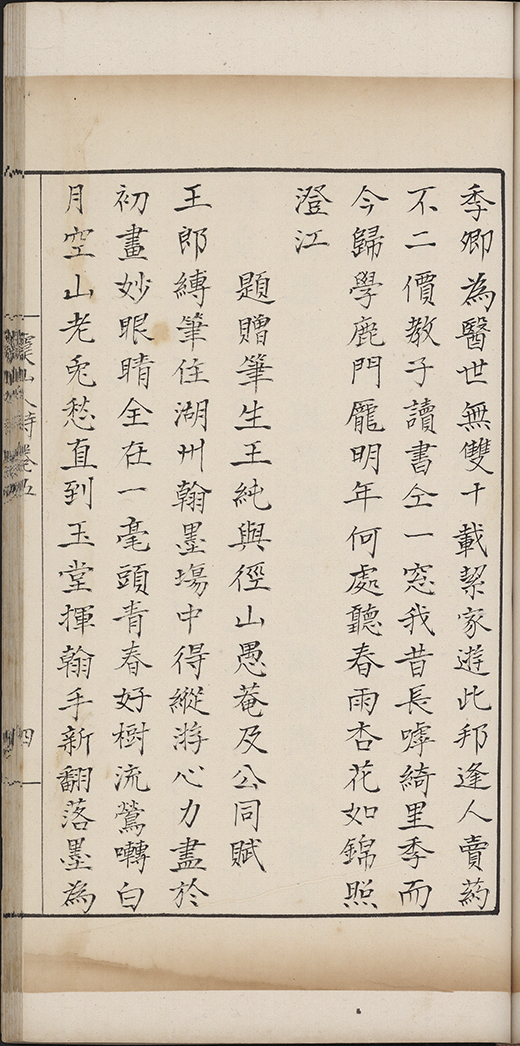 季卿為醫世無雙十載挈家遊此邦逢人賣葯
不二價教子讀書仝一窓我昔長嘑綺里季而
今歸學鹿門龐明年何處聽春雨杏花如錦照
澄江
題贈筆生王純與徑山愚菴及公同賦
王郎縛筆住湖州翰墨塲中得縱游心力盡於
初畫妙眼睛全在一毫頭青春好樹流鶯囀白
月空山老兎愁直到玉堂揮翰手新翻落墨為
人詩卷五
四